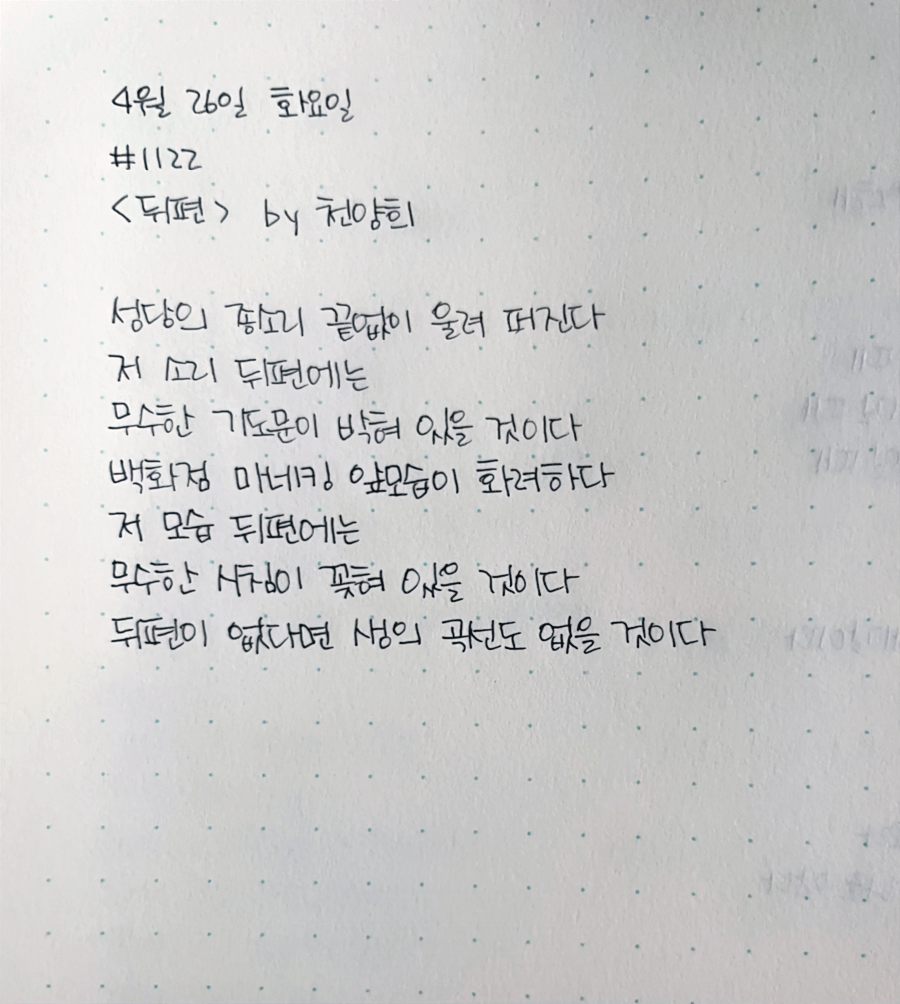 4월 26일 화요일
#1122
<뒤편> by 천양희
성당의 종소리 끝없이 울려 퍼진다
저 소리 뒤편에는
무수한 기도문이 박혀 있을 것이다
백화점 마네킹 앞모습이 화려하다
저 모습 뒤편에는
무수한 시침이 꽂혀 있을 것이다
뒤편이 없다면 생의 곡선도 없을 것이다